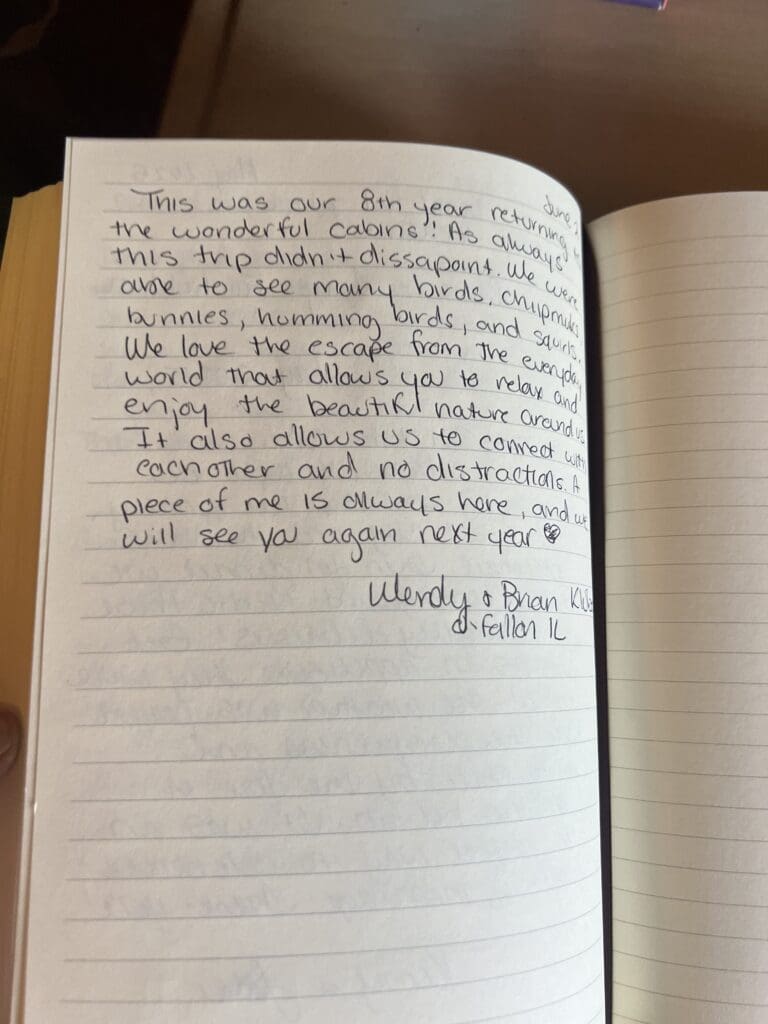 June
This was our 8th year returning to
the wonderful cabins! As always
this trip didn't dissapoint. We were
able to see many birds, chipmunks
bunnies, humming birds, and squirls.
We love the escape from the everyday
world that allows you to relax and
enjoy the beautiful nature around us
It also allows us to connect with
eachother and no distractions. A
piece of me is always here, and we
will see you again next year
Wendy & Brian
O'Fallon IL